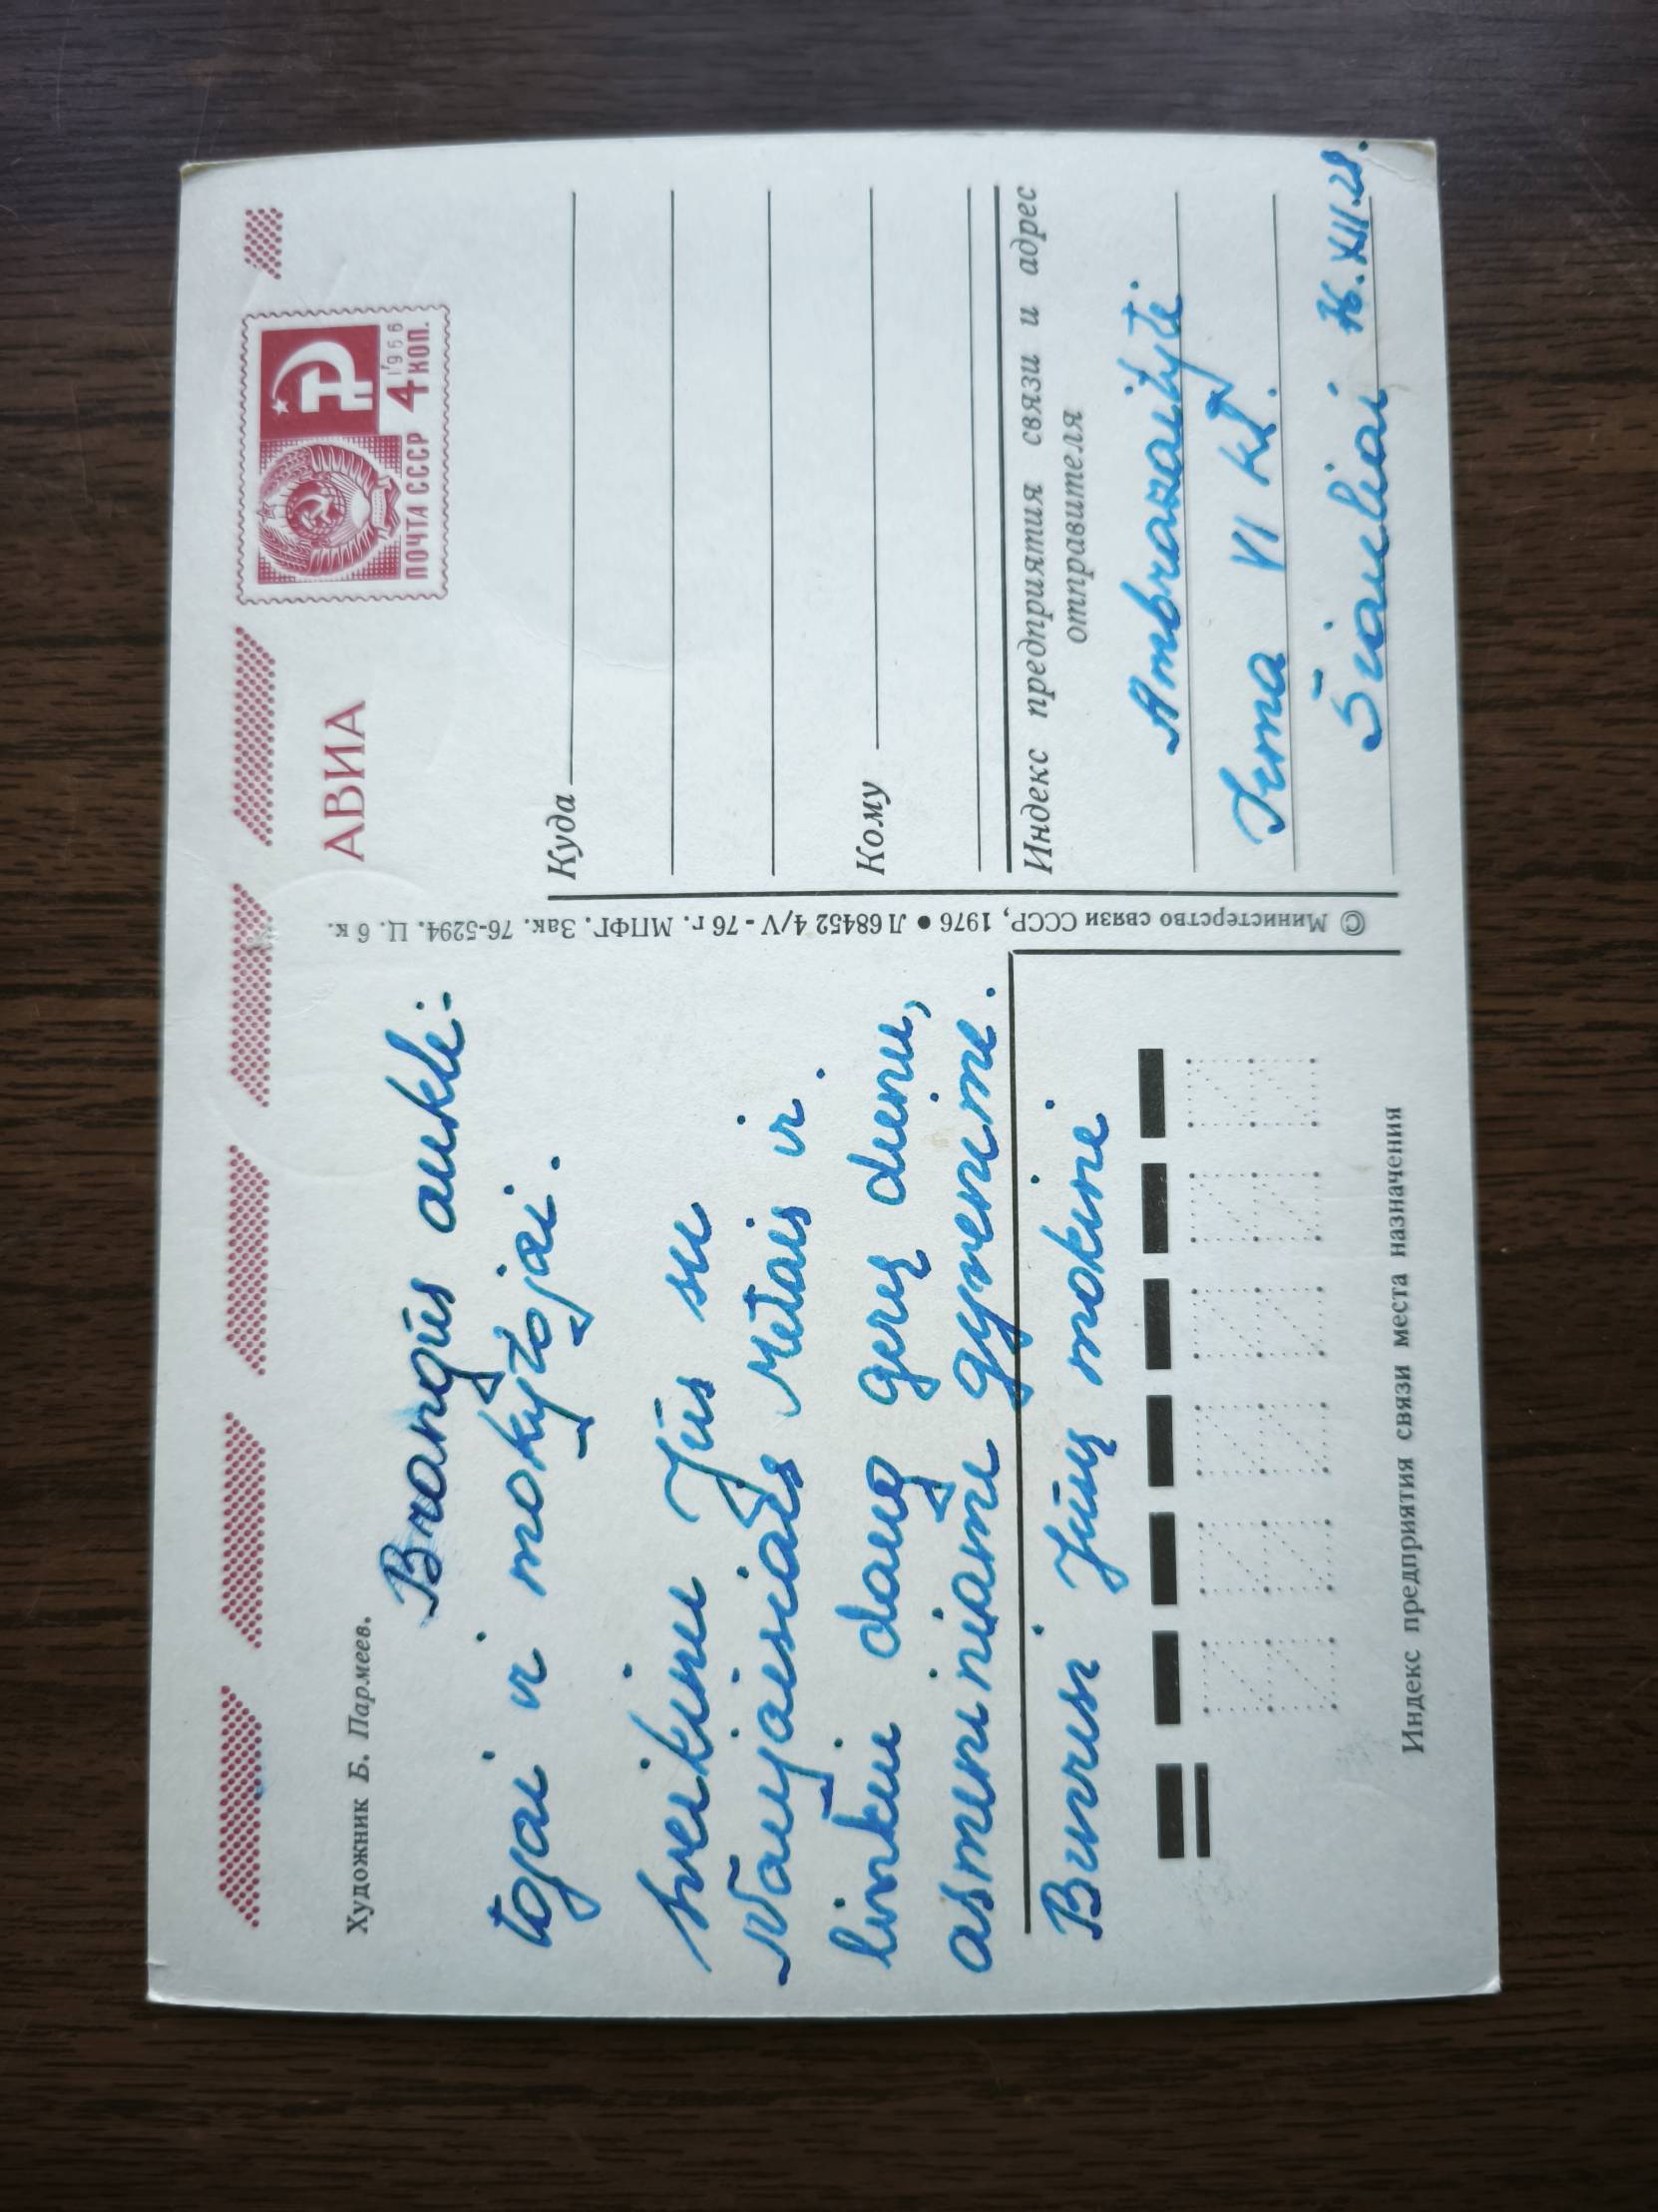 Художник Б. Пармеев.
Brangūs auklė-
tojai ir mokytojai.
Sveikinu Jūs su
Naujaisiais Metais ir
linkiu daug gerų dienu,
asmeniniame gyvenime.
Buvusi Jūsų mokinė
Индекс предприятия связи места назначения
© Министерство связи СССР, 1976 • Л 68452 4/V - 76 г. МПФГ. Зак. 76-5294. Ц. 6 к.
АВИА
1966
ПОЧТА СССР 4 КОП.
Куда
Кому
Индекс предприятия связи и адрес
отправителя
Ambrazaitytė
Irma VI kl.
Šiauliai 76.XII.28.